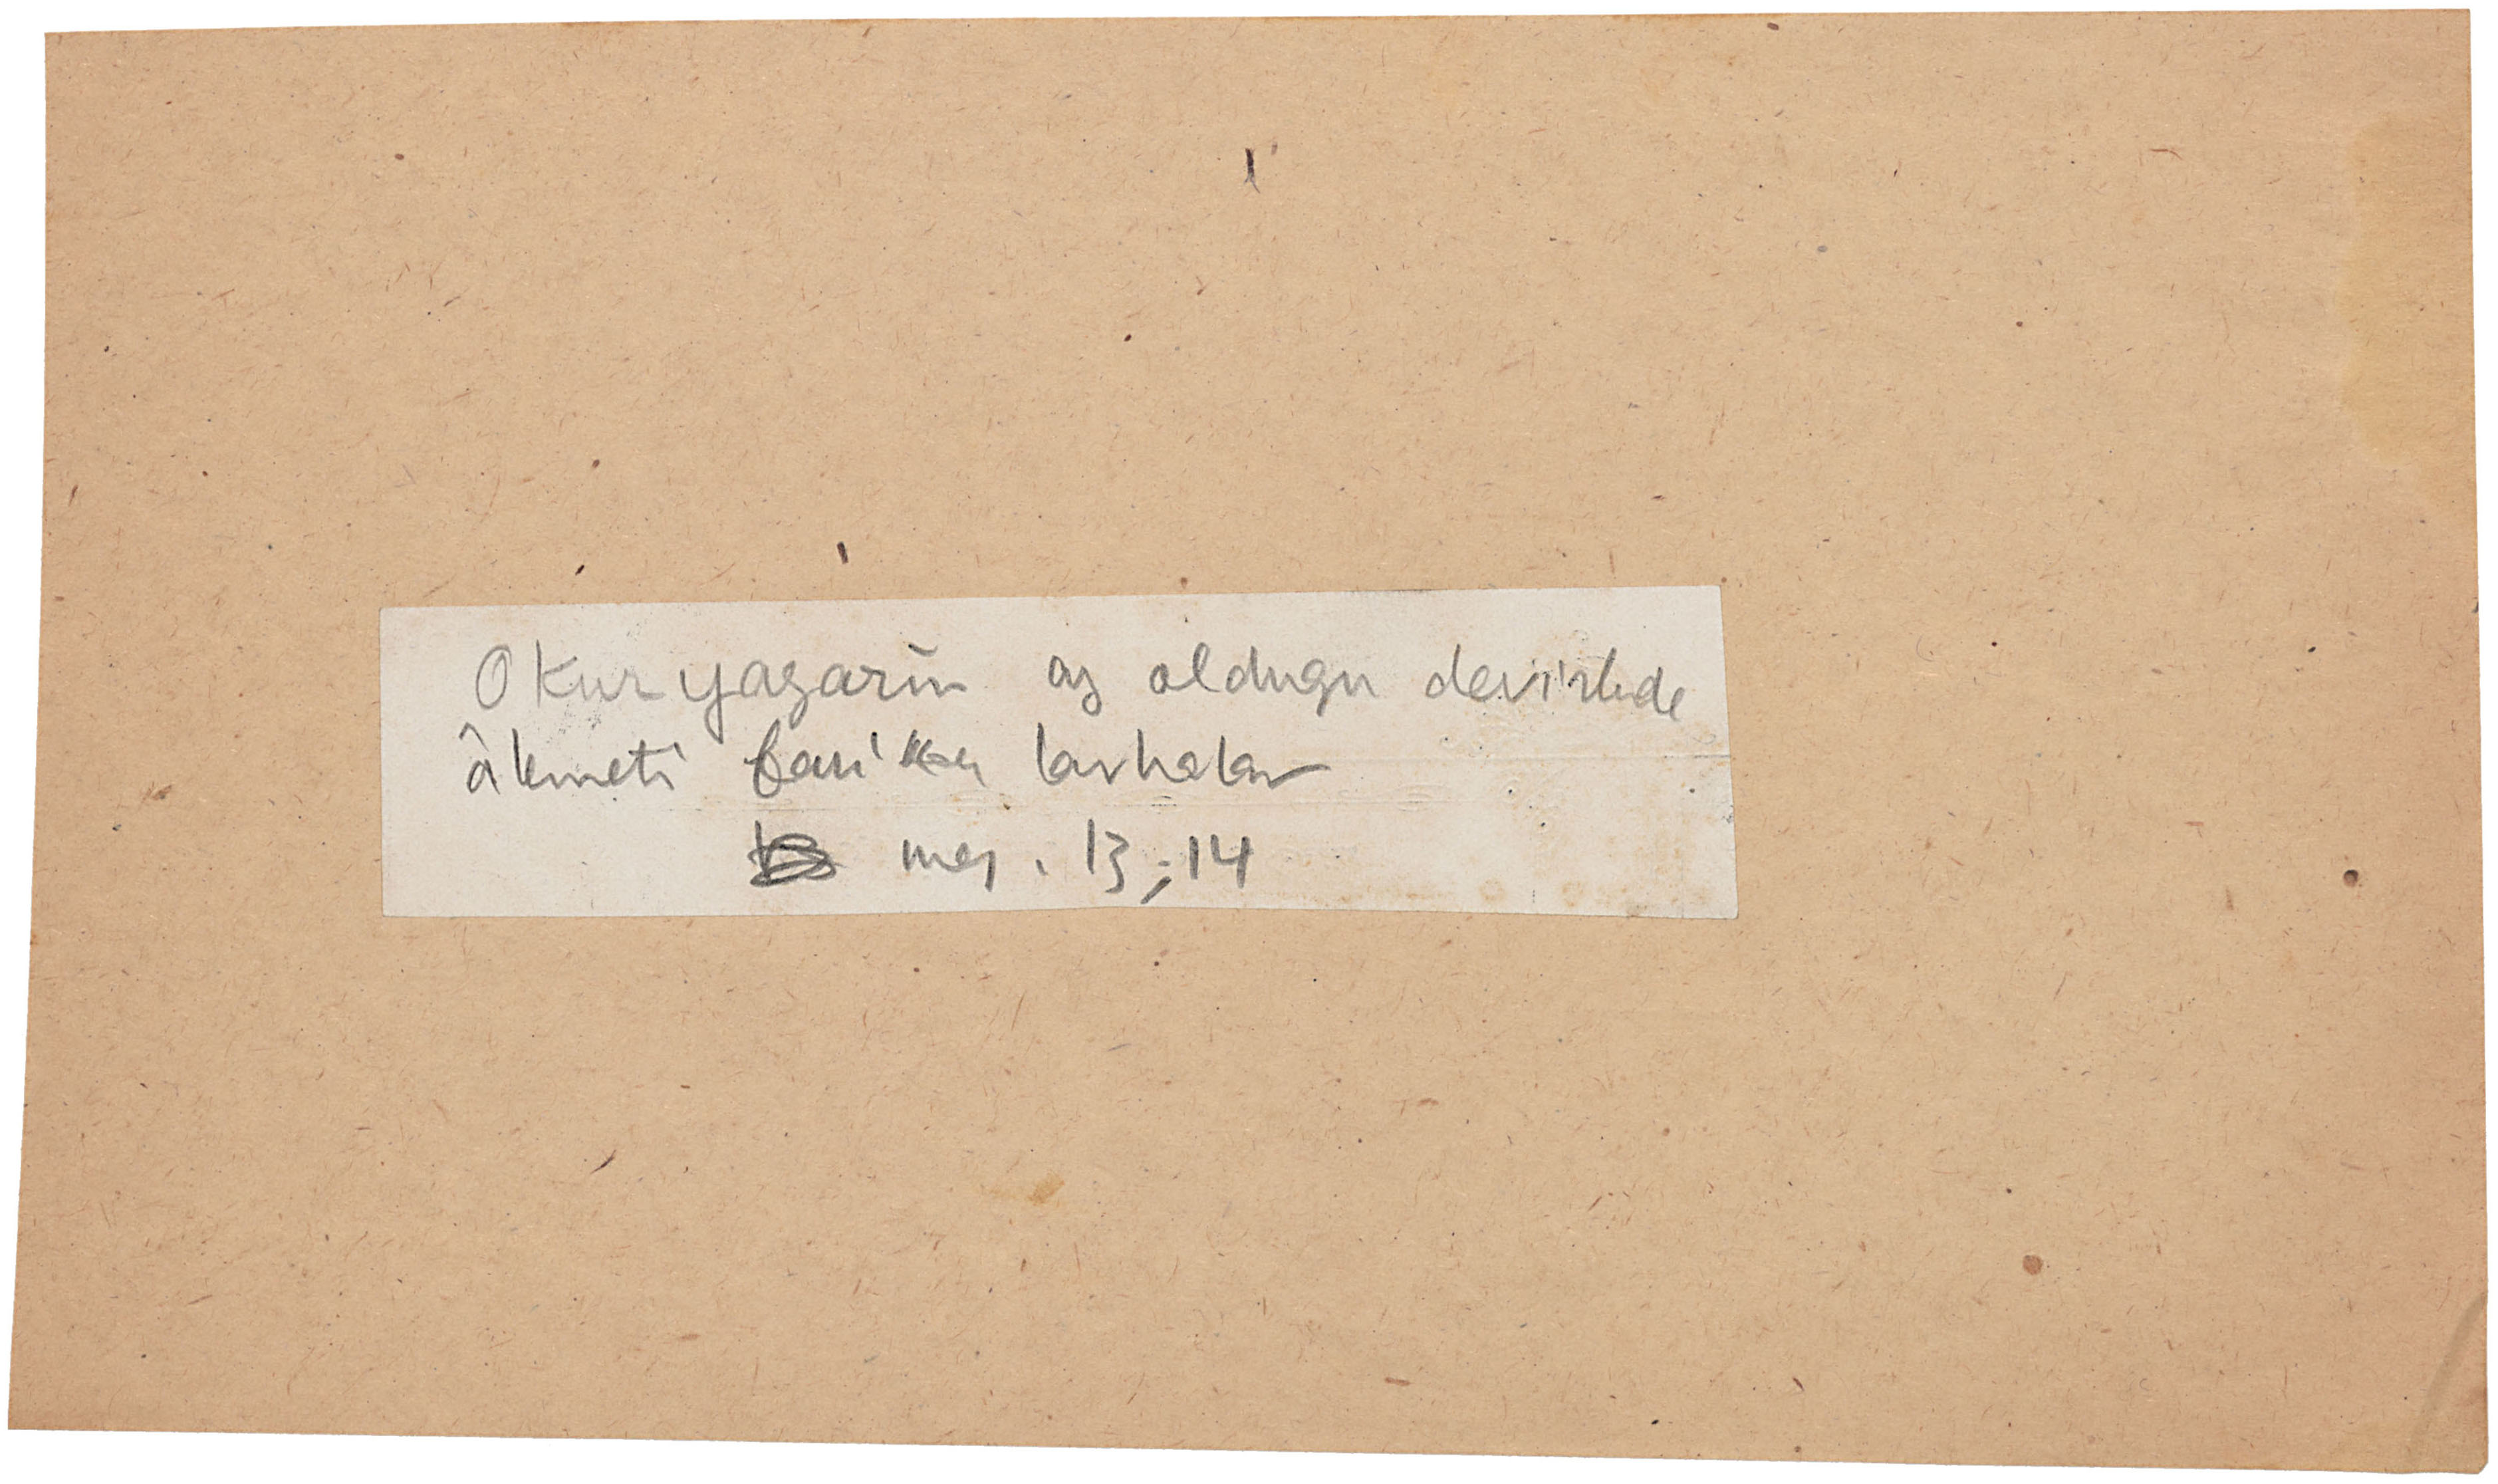 Okur yazarın az olduğu devirlerde
âlemeti farika levhalar
mes. 13, 14